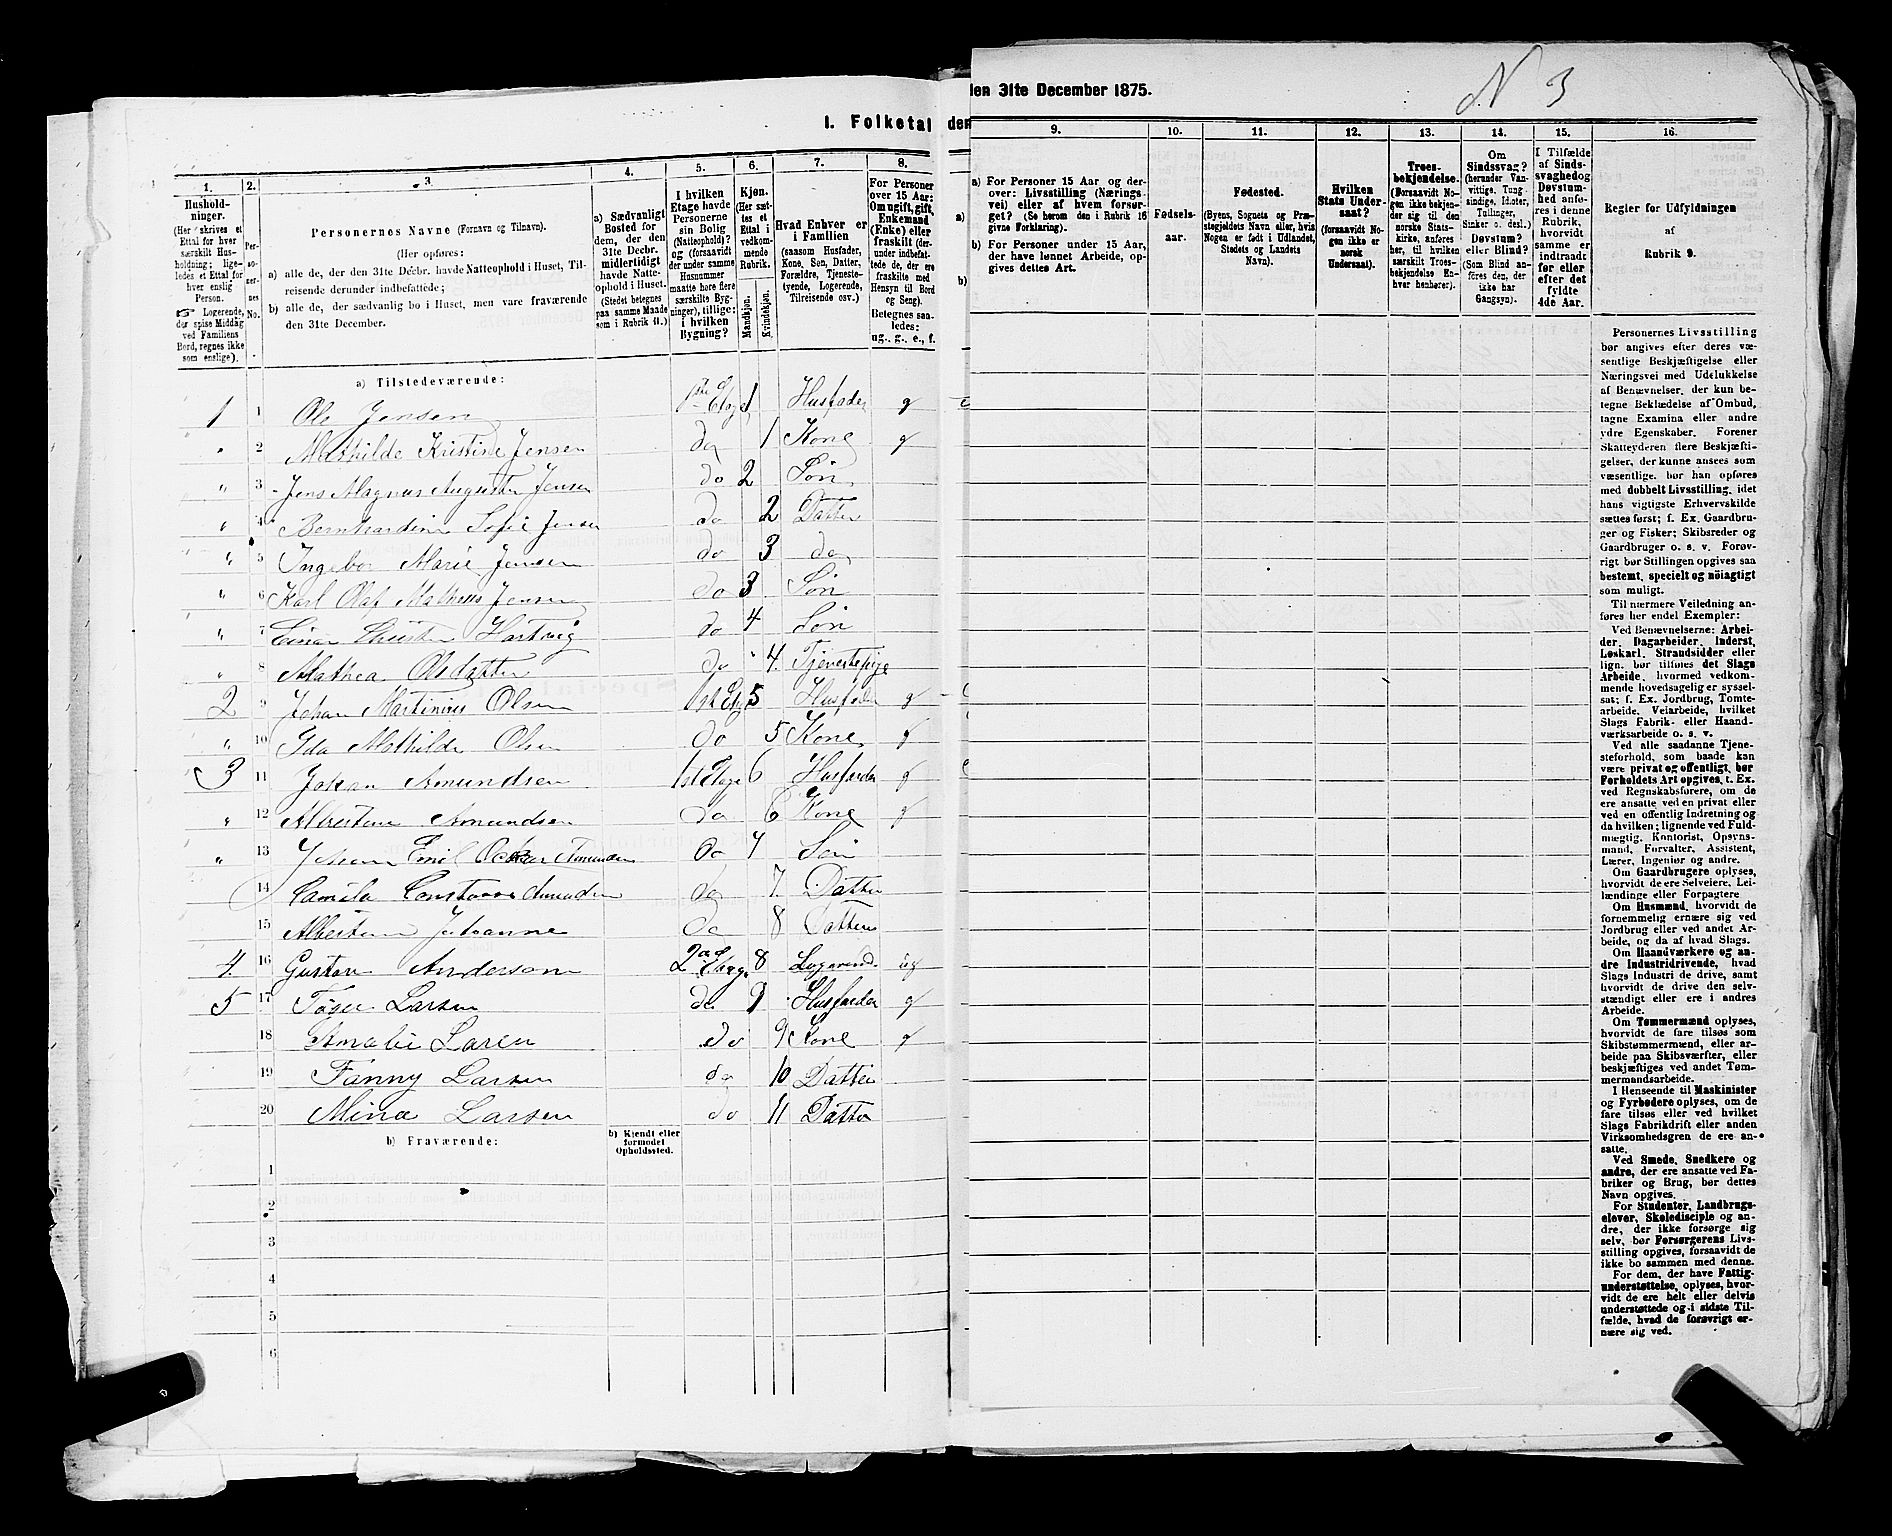 N 3
den 31te December 1875.
I. Folketal den
1. 2. 3. 4. 5. 6. 7. 8.
Hushold-
ninger.
(Her skrives et
Ettal for hver
særskilt Hus-
holdning; lige-
ledes et Ettal for
hver enslig
Person.
☞ Logerende,
der spise Middag
ved Familiens
Bord, regnes ikke
som enslige).
Per-
so-
ner-
nes
No.
Personernes Navne (Fornavn og Tilnavn).
(Her opføres:
a) alle de, der den 31te Decbr. havde Natteophold i Huset, Til-
reisende derunder indbefattede;
b) alle de, der sædvanlig bo i Huset, men vare fraværende
den 31te December.
a) Sædvanligt
Bosted for
dem, der den
31te Decbr.
midlertidigt
havde Natte-
ophold i Huset.
(Stedet betegnes
paa samme Maade
som i Rubrik 11.)
I hvilken
Etage havde
Personerne
sin Bolig
(Natteophold)?
og (forsaavidt
der under samme
Husnummer
maatte høre flere
særskilte Byg-
ninger), tillige:
i hvilken
Bygning?
Kjøn.
(Her sæt-
tes et
Ettal i
vedkom-
mende
Rubrik.
Mandkjøn.
Kvindekjøn.
Hvad Enhver er
i Familien
(saasom Husfader,
Kone, Søn, Datter,
Forældre, Tjeneste-
tyende, Logerende,
Tilreisende osv.)
For Personer
over 15 Aar:
Om ugift, gift,
Enkemand
(Enke) eller
fraskilt (der-
under indbefat-
tede de, der ere
fraskilte med
Hensyn til Bord
og Seng).
Betegnes saa-
ledes:
ug., g., e., f.
a) Tilstedeværende:
1 1 Ole Jensen 1ste Etage 1 Husfader g
" 2 Mathilde Kristine Jensen do 1 Kone g
" 3 Jens Magnus August Jensen do 2 Søn
" 4 Bernhardine Sofie Jensen do 2 Datter
" 5 Ingebor Marie Jensen do 3 do
" 6 Karl Olaf Jensen do 3 Søn
" 7 Einar Hartvig do 4 Søn
" 8 Mathea Olsdatter do 4. Tjenestepige
2 9 Johan Martinius Olsen 1st Etg 5 Husfader g
" 10 Ida Mathilde Olsen do 5 Kone g
3 11 Johan Amundsen 1st Etage 6 Husfader g
" 12 Albertine Amundsen do 6 Kone g
" 13 Johan Emil Oskar Amundsen do 7 Søn
14 Camila Amundsen do 7. Datter
15 Albertine Johanne do 8 Datter
4. 16 Gustav Anderson 2den Etage 8 Logerende ug
5 17 Larsen do 9 Husfader g
18 Amalie Larsen do 9 Kone g
19 Fanny Larsen do 10 Datter
20 Mina Larsen do 11 Datter
b) Fraværende:
b) Kjendt eller
formodet
Opholdssted.
1
2
3
4
5
6
9. 10. 11. 12. 13. 14. 15. 16.
a)
b)
a) For Personer 15 Aar og der-
over: Livsstilling (Nærings-
vei) eller af hvem forsør-
get? (Se herom den i Rubrik 16
givne Forklaring).
b) For Personer under 15 Aar,
der have lønnet Arbeide, op-
gives dettes Art.
Fødsels-
aar.
Fødested.
(Byens, Sognets og Præ-
stegjeldets Navn eller, hvis
Nogen er født i Udlandet,
Stedets og Landets
Navn).
Hvilken
Stats Under-
saat?
(forsaavidt No-
gen ikke er
norsk
Undersaat).
Troes-
bekjendelse.
(Forsaavidt No-
gen ikke bekjen-
der sig til den
norske Stats-
kirke, anføres
her, til hvilken
særskilt Troes-
bekjendelse En-
hver henhører).
Om
Sindssvag?
(herunder Van-
vittige, Tung-
sindige, Idioter,
Tullinger,
Sinker o. desl.)
Døvstum?
eller Blind?
(Som Blind an-
føres den, der
ikke har
Gangsyn).
I Tilfælde
af Sinds-
svaghed og
Døvstum-
hed anfø-
res i denne
Rubrik,
hvorvidt
samme er
indtraadt
før eller
efter det
fyldte
4de Aar.
Regler for Udfyldningen
af
Rubrik 9.
Personernes Livsstilling
bør angives efter deres væ-
sentlige Beskjæftigelse eller
Næringsvei med Udelukkelse
af Benævnelser, der kun be-
tegne Beklædelse af Ombud,
tagne Examina eller andre
ydre Egenskaber. Forener
Skatteyderen flere Beskjæfti-
gelser, der kunne ansees som
væsentlige, bør han opføres
med dobbelt Livsstilling, idet
hans vigtigste Erhvervskilde
sættes først; f. Ex. Gaardbru-
ger og Fisker; Skibsreder og
Gaardbruger o. s. v. Forøv-
rigt bør Stillingen opgives saa
bestemt, specielt og nöiagtigt
som muligt.
Til nærmere Veiledning an-
føres her endel Exempler:
Ved Benævnelserne: Arbei-
der, Dagarbeider, Inderst,
Løskarl, Strandsidder eller
lign. bør tilføies det Slags
Arbeide, hvormed vedkom-
mende hovedsagelig er syssel-
sat; f. Ex. Jordbrug, Tomte-
arbeide, Veiarbeide, hvilket
Slags Fabrik- eller Haand-
værksarbeide o. s. v.
Ved alle saadanne Tjene-
steforhold, som baade kan
være privat og offentligt, bør
Forholdets Art opgives, t. Ex.
ved Regnskabsførere, om de
ere ansatte ved en privat eller
ved en offentlig Indretning og
da hvilken; lignende ved Fuld-
mægtig, Kontorist, Opsyns-
mand, Forvalter, Assistent,
Lærer, Ingeniør og andre.
Om Gaardbrugere oplyses,
hvorvidt de ere Selveiere, Lei-
lændinge eller Forpagtere
Om Husmænd, hvorvidt de
fornemmelig ernære sig ved
Jordbrug eller ved andet Ar-
beide, og da af hvad Slags.
Om Haandværkere og an-
dre Industridrivende, hvad
Slags Industri de drive, samt
hvorvidt de drive den selv-
stændigt eller ere i andres
Arbeide.
Om Tømmermænd oplyses,
hvorvidt de fare tilsøs som
Skibstømmermænd, eller ar-
beide paa Skibsværfter, eller
beskjæftiges ved andet Tøm-
mermandsarbeide.
I Henseende til Maskinister
og Fyrbødere oplyses, om de
fare tilsøs eller ved hvilket
Slags Fabrikdrift eller anden
Virksomhedsgren de ere an-
satte.
Ved Smede, Snedkere og
andre, der ere ansatte ved Fa-
briker og Brug, bør dettes
Navn opgives.
For Studenter, Landbrugs-
elever, Skoledisciple og an-
dre, der ikke forsørge sig
selv, bør Forsørgerens Livs-
stilling opgives, forsaavidt de
ikke bo sammen med denne.
For dem, der have Fattig-
understøttelse, oplyses, hvor-
vidt de ere helt eller delvis
understøttede og i sidste Til-
fælde, hvad de forøvrigt er-
nære sig ved.